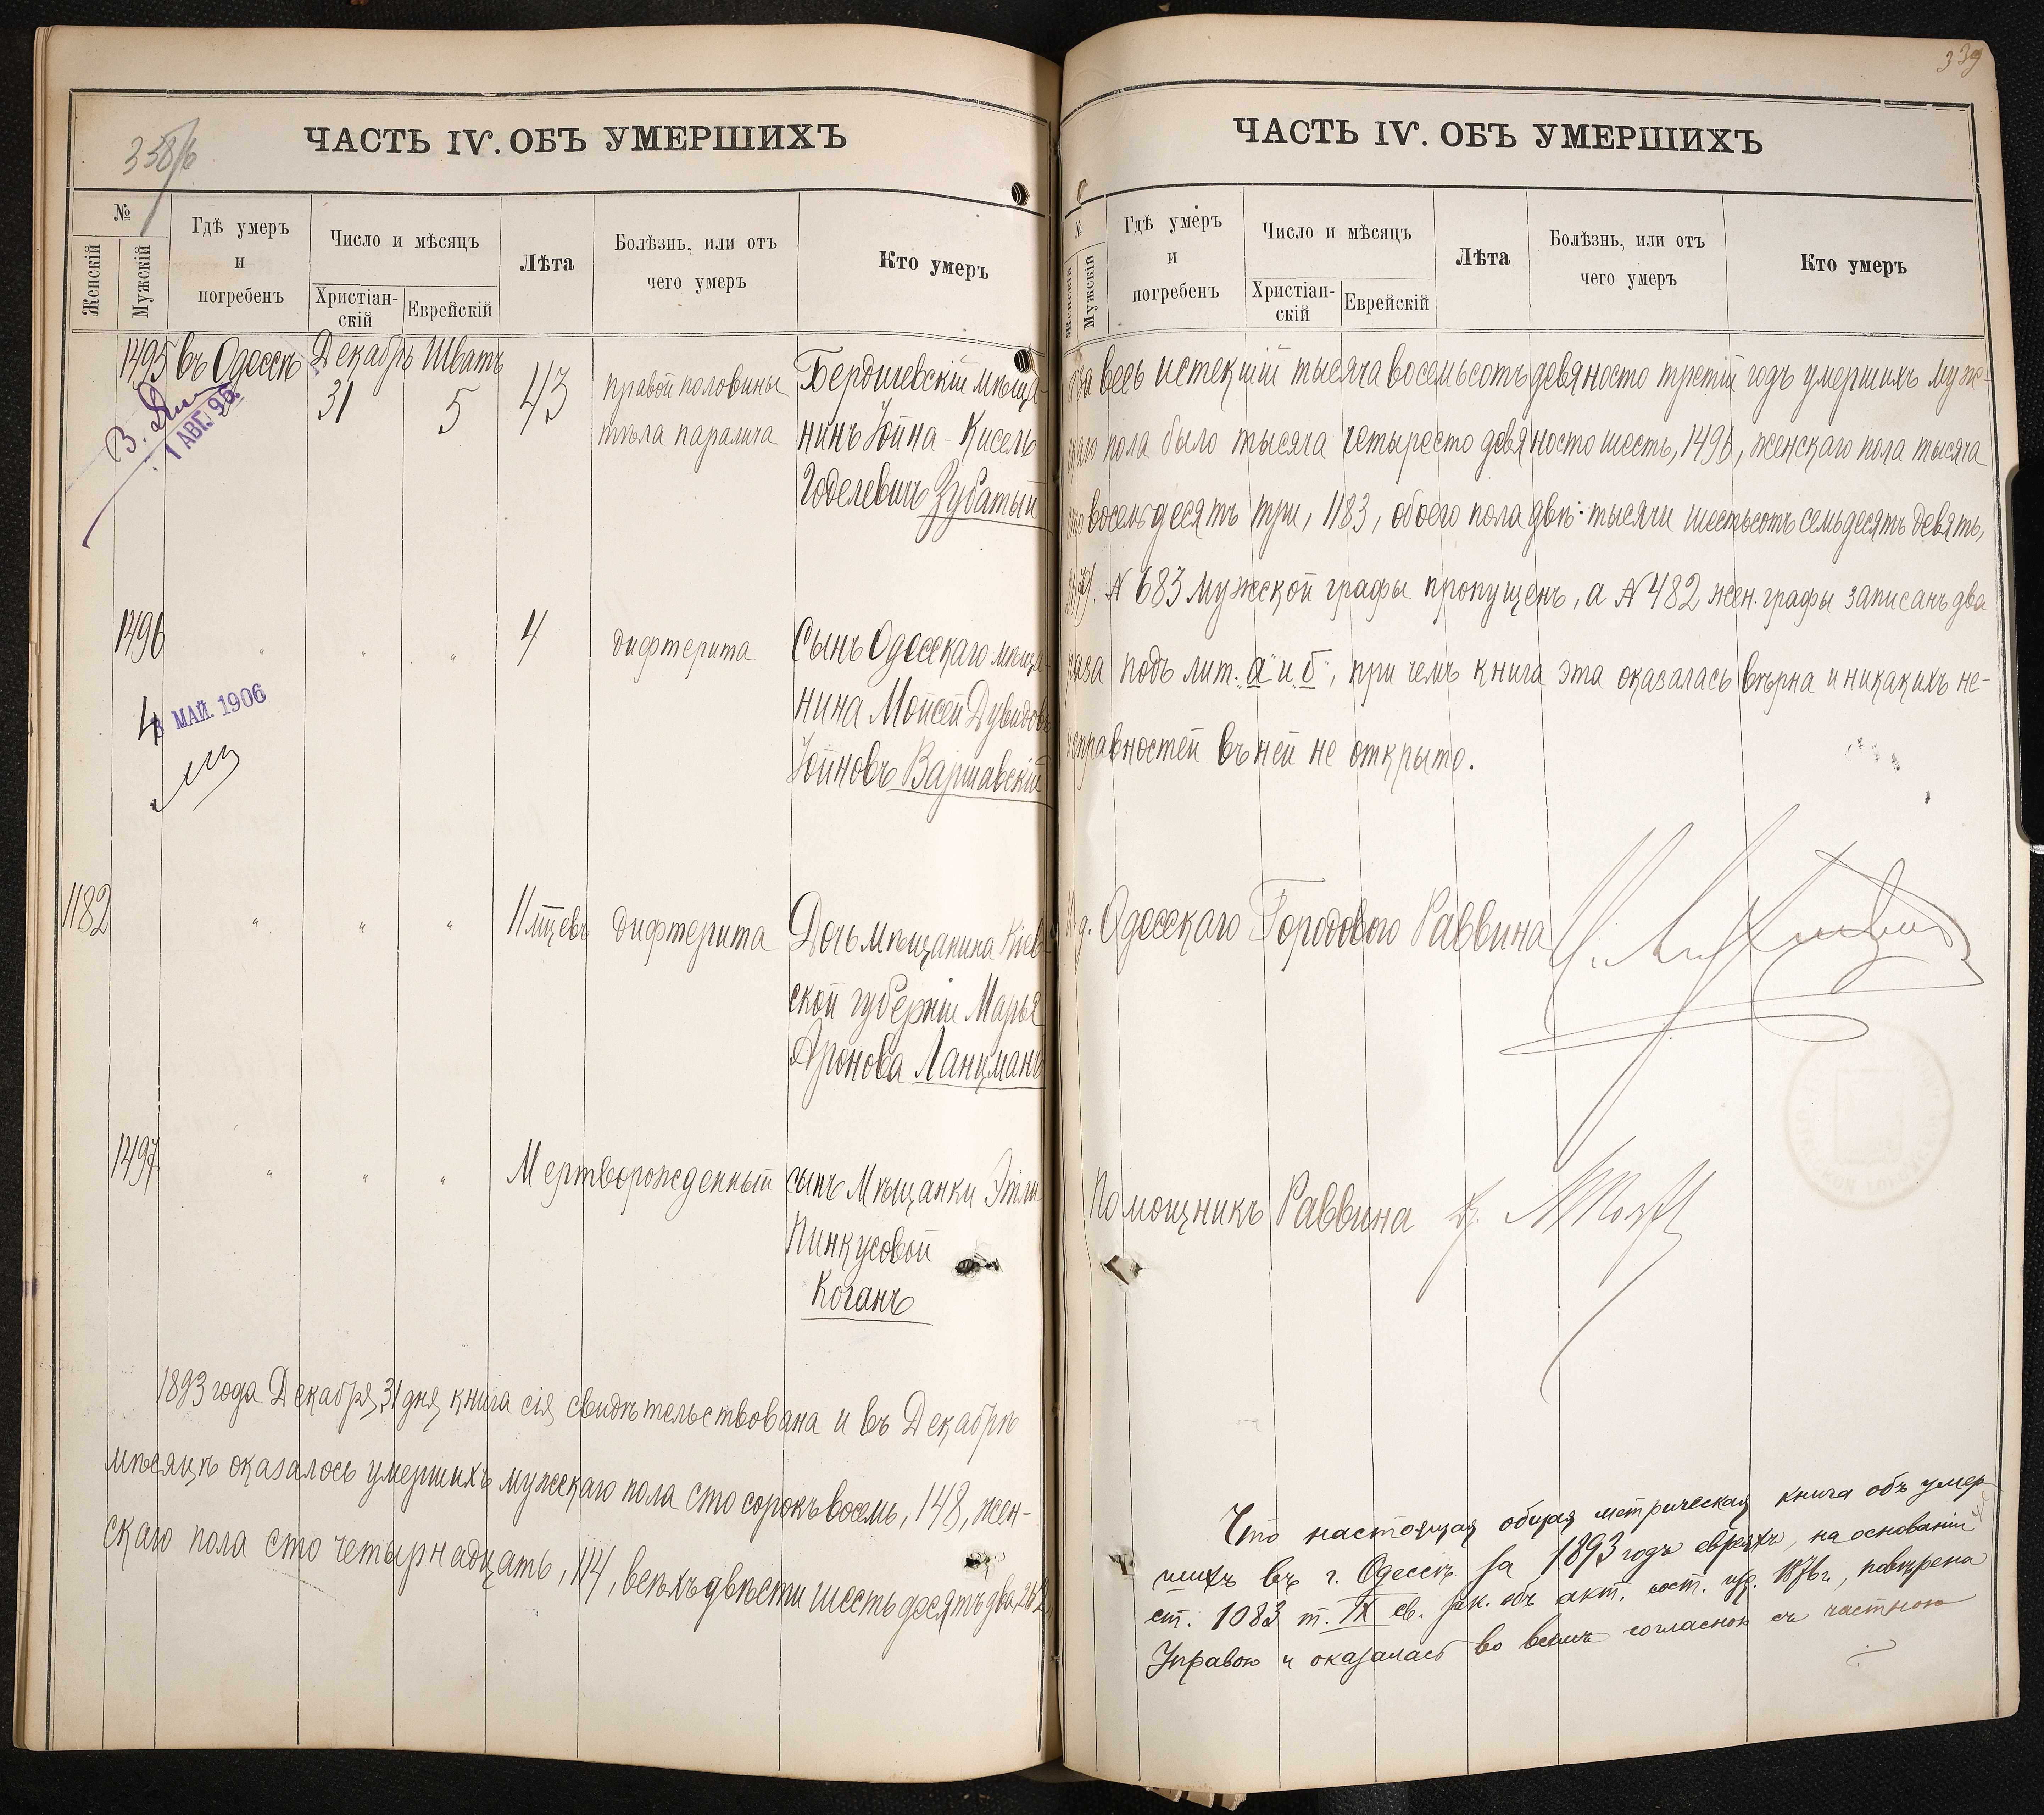 358/б
ЧАСТЬ IV. ОБЪ УМЕРШИХЪ
№
Женскій
Мужскій
Гдѣ умеръ
и
погребенъ
Число и мѣсяцъ
Христіан-
скій
Еврейскій
Лѣта
Болѣзнь, или отъ
чего умеръ
Кто умеръ
1495 въ Одессѣ Декабрь Шватъ
31 5 43
правой половины
тѣла паралича
Бердичевскій мѣща-
нинъ Іойна-Кисель
Годелевичъ Зубатый
1 АВГ. 95
1496 " " " 4 дифтерита
Сынъ Одесскаго мѣща-
нина Мойсей Дувидовъ
Іойновъ Варшавскій
4
3 МАЙ. 1906
1182 " " " 11 мцевъ дифтерита
Дочь мѣщанина Кіев-
ской губерніи Марья
Аронова Ланцманъ
1497 " " " Мертворожденный
сынъ Мѣщанки Этли
Пинкусовой
Коганъ
1893 года Декабря 31 дня, книга сія свидѣтельствована и въ Декабрѣ
мѣсяцѣ оказалось умершихъ мужскаго пола сто сорокъ восемь, 148, жен-
скаго пола сто четырнадцать, 114, всѣхъ двѣсти шестьдесятъ два, 262,
339
ЧАСТЬ IV. ОБЪ УМЕРШИХЪ
№
Женскій
Мужскій
Гдѣ умеръ
и
погребенъ
Число и мѣсяцъ
Христіан-
скій
Еврейскій
Лѣта
Болѣзнь, или отъ
чего умеръ
Кто умеръ
за весь истекшій тысяча восемьсотъ девяносто третій годъ умершихъ муж-
скаго пола было тысяча четыресто девяносто шесть, 1496, женскаго пола тысяча
сто восемьдесятъ три, 1183, обоего пола двѣ тысячи шестьсотъ семьдесятъ девять,
2679. № 683 мужской графы пропущенъ, а № 482 жен. графы записанъ два
раза подъ лит. „а" и „б", при чемъ книга эта оказалась вѣрна и никакихъ не-
исправностей въ ней не открыто.
И. д. Одесскаго Городового Раввина
Помощникъ Раввина
Что настоящая общая метрическая книга объ умер
шихъ въ г. Одессѣ за 1893 годъ евреяхъ, на основаніи
ст. 1083 т. IX св. зак. объ акт. сост. изд. 1876 г., повѣрена
Управою и оказалась во всемъ согласною съ частною